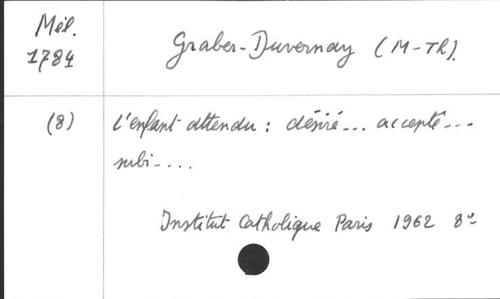 Mél.
1784
Graber-Duvernay (M-Th).
(8)
L'enfant attendu : désiré... accepté...
subi....
Institut Catholique Paris 1962 8º